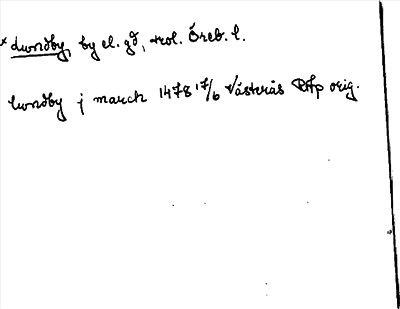 × Lundby, by el. gd, trol. Örebr. l.
lundby j march 1478 17/6 Västerås RAp orig.